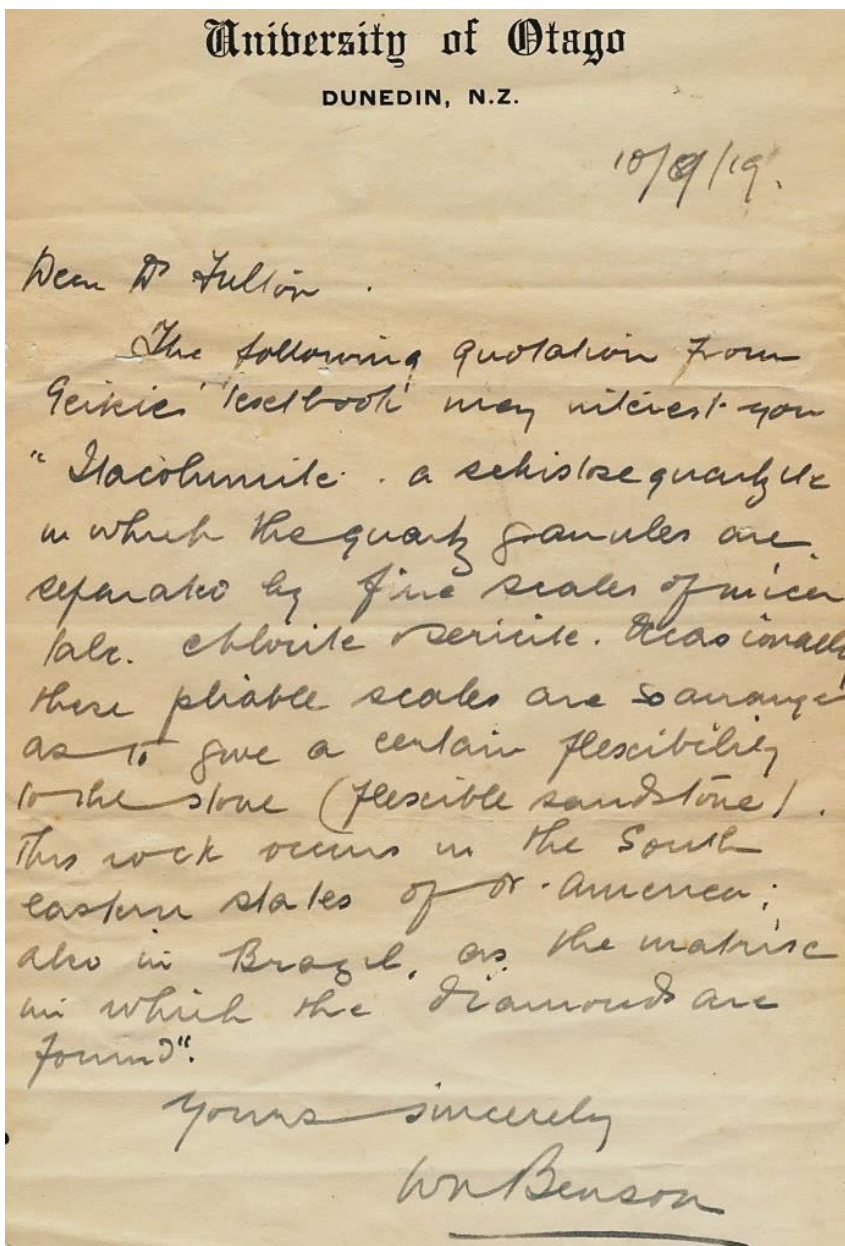 University of Otago
DUNEDIN, N.Z.
10/9/19.
Dear Dr Fulton.
The following quotation from
Geikies 'textbook' may interest you
"Itacolumite. a schistose quartzite
in which the quartz granules are
separated by fine scales of mica
talc. chlorite & sericite. Occasionally
these pliable scales are so arranged
as to give a certain flexibility
to the stone (flexible sandstone).
This rock occurs in the South
eastern states of N. America;
also in Brazil, as the matrix
in which the diamonds are
found".
Yours sincerely
WN Benson